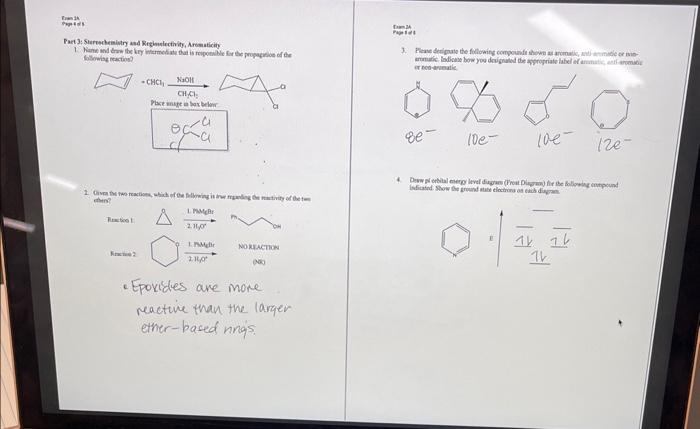 Exam 2A
Page 4 of 8
Part 3: Stereochemistry and Regioselectivity, Aromaticity
1. Name and draw the key intermediate that is responsible for the propagation of the
following reaction?
+ CHCl₃
NaOH
CH₂Cl₂
Cl
Cl
Place image in box below:
Cl
Cl
Cl
2. Given the two reactions, which of the following is true regarding the reactivity of the two
ethers?
Reaction 1:
1. PhMgBr
2. H₃O⁺
Ph
OH
Reaction 2:
O
1. PhMgBr
2. H₃O⁺
NO REACTION
(NR)
Epoxides are more
reactive than the larger
ether-based rings.
Exam 2A
3. Please designate the following compounds shown as aromatic, anti-aromatic or non-
aromatic. Indicate how you designated the appropriate label of aromatic, anti-aromatic
or non-aromatic.
8e⁻
10e⁻
10e⁻
12e⁻
4. Draw pi orbital energy level diagram (Frost Diagram) for the following compound
indicated. Show the ground state electrons on each diagram.
N
E